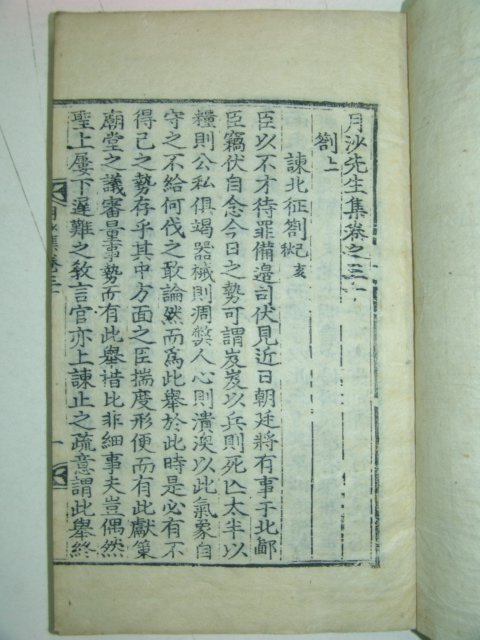 月沙先生集卷之三十
劄上
諫北征劄 紀亥
臣以不才待罪備邊司伏見近日朝廷將有事于北鄙
臣竊伏自念今日之勢可謂岌岌以兵則死亡太半以
糧則公私俱竭器械則凋弊人心則潰渙以此氣象自
守之不給何伐之敢論然而爲此擧於此時是必有不
得已之勢存乎其中方面之臣揣度形便而有此獻策
廟堂之議審量事勢而有此擧措比非細事夫豈偶然
聖上屢下遲難之敎言官亦上諫止之疏意謂此擧終
月沙集卷三十
一